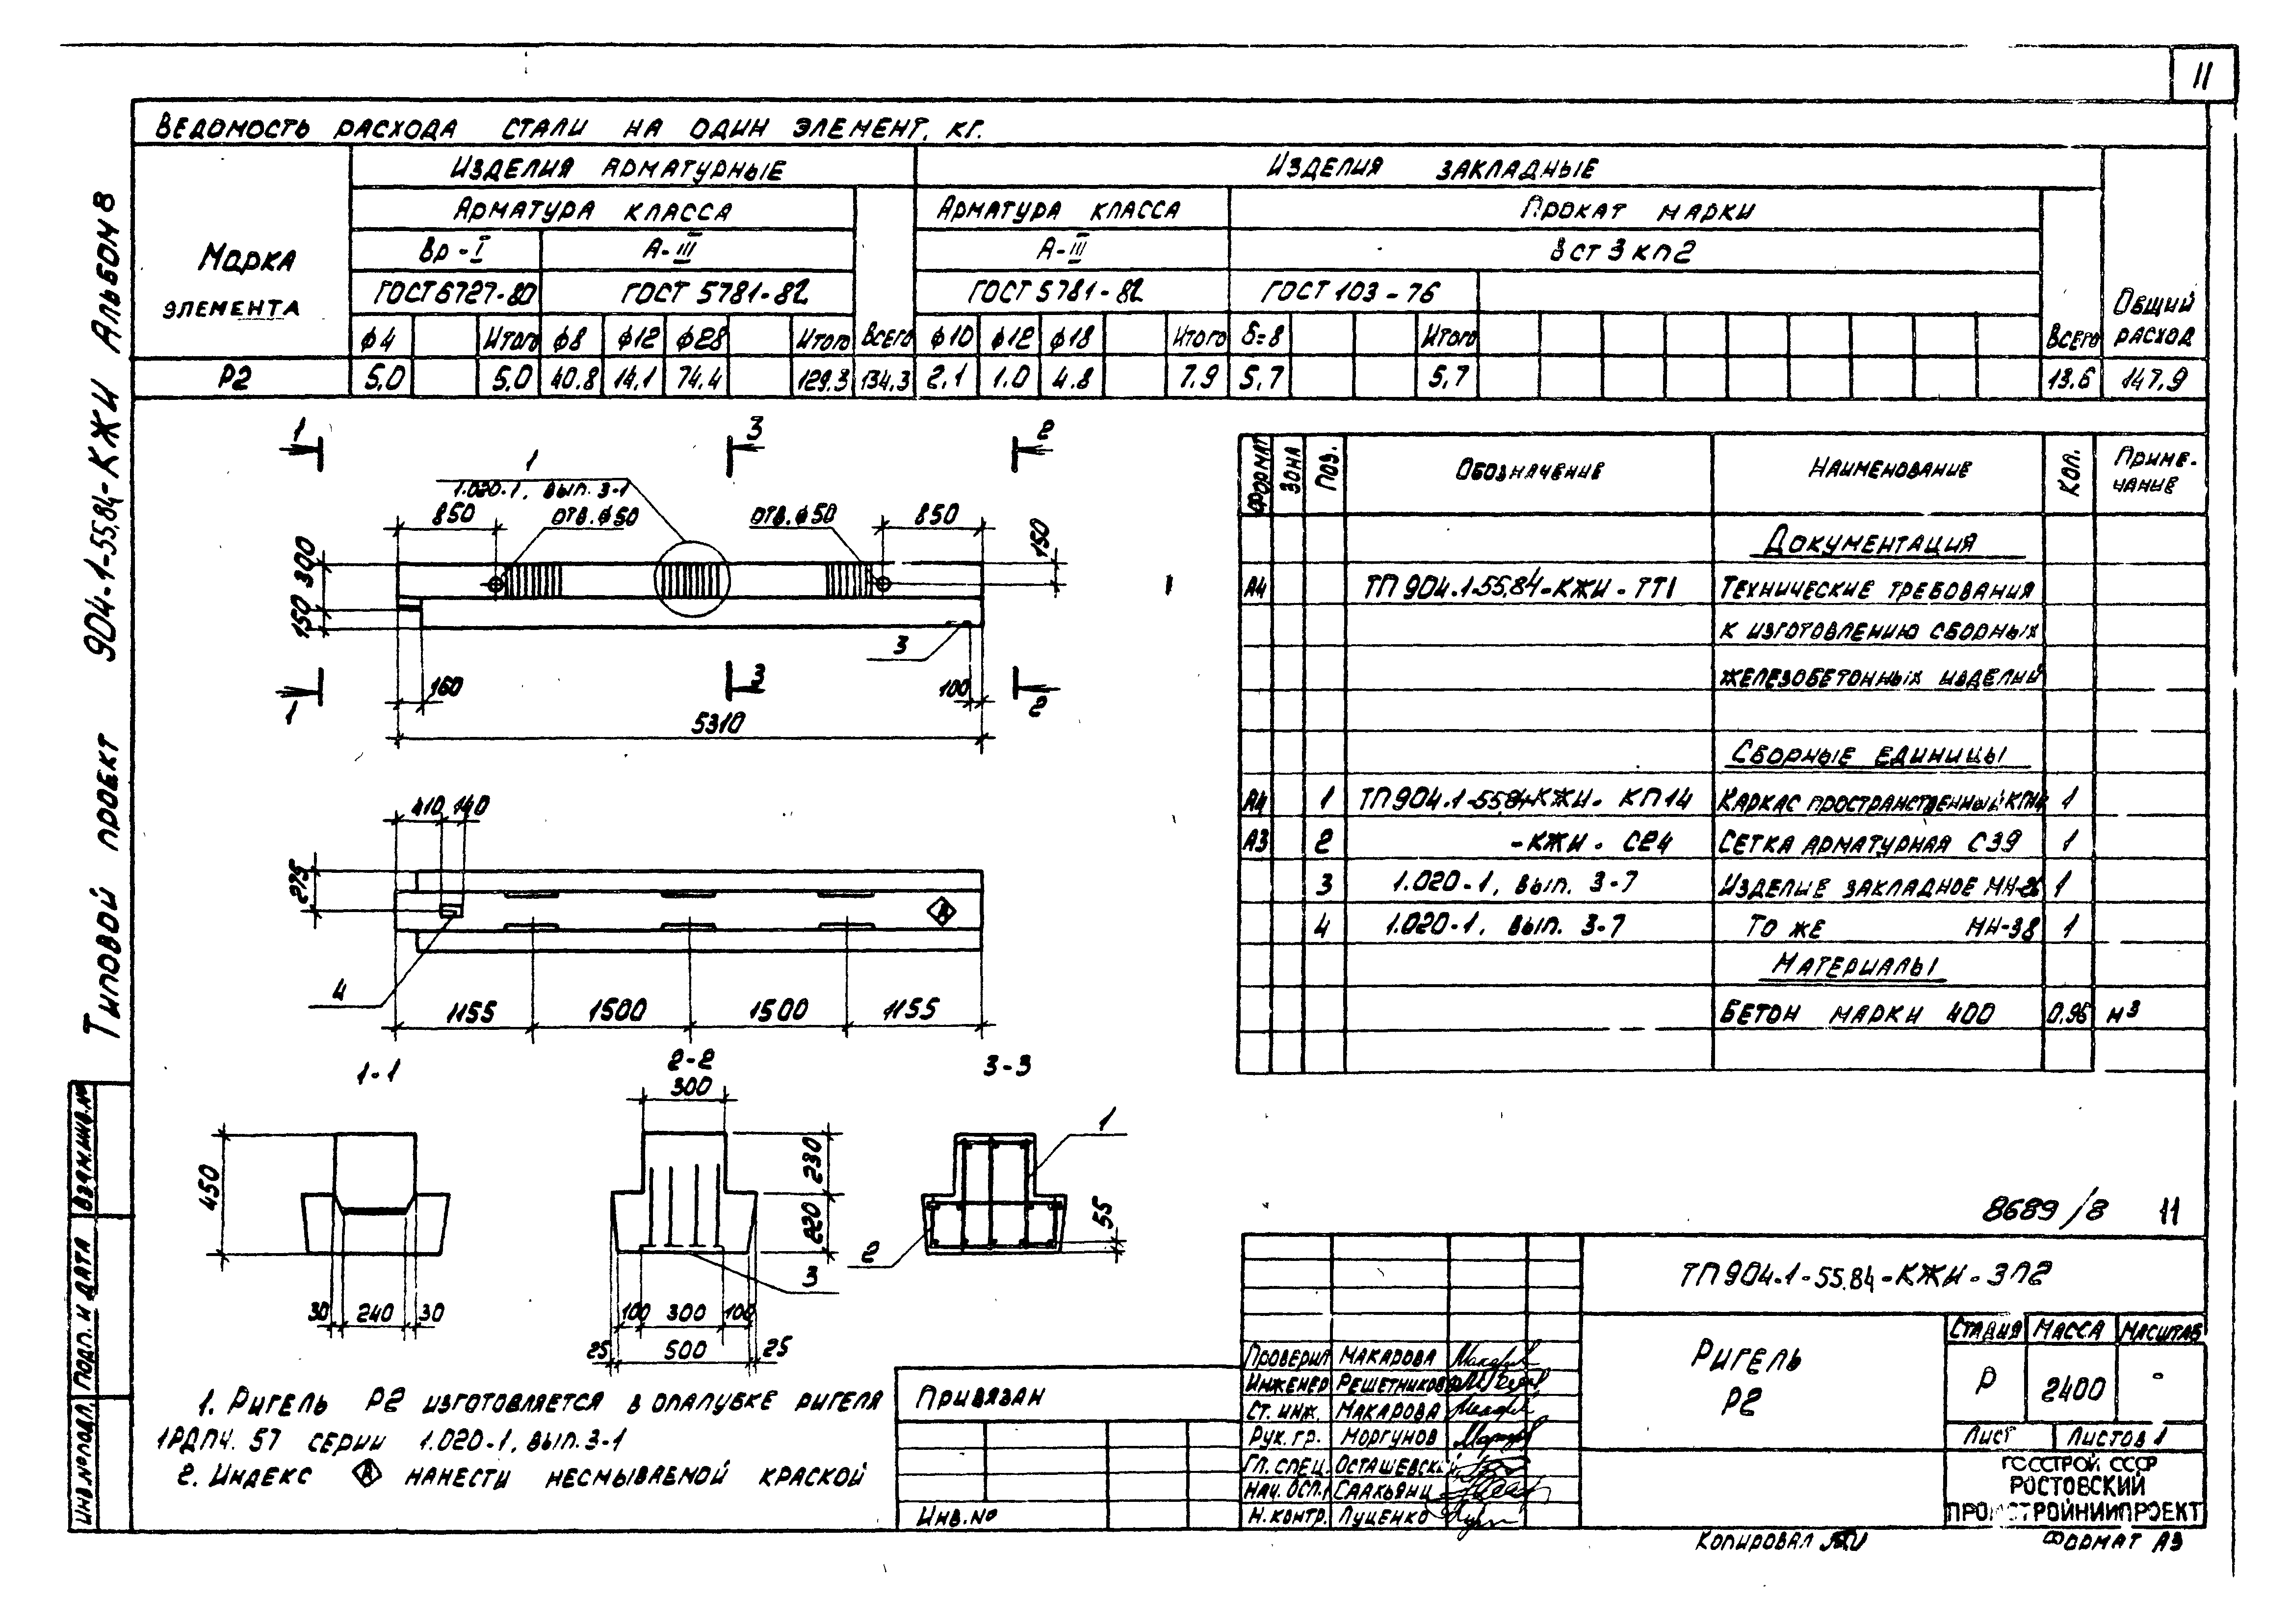 11
Ведомость расхода стали на один элемент, кг.
Марка элемента
Изделия арматурные
Изделия закладные
Общий расход
Арматура класса
Всего
Арматура класса
Прокат марки
Всего
Вр-I
А-III
А-III
В ст 3 кп2
ГОСТ 6727-80
ГОСТ 5781-82
ГОСТ 5781-82
ГОСТ 103-76
ф4 Итого ф8 ф12 ф28 Итого ф10 ф12 ф18 Итого δ=8 Итого
Р2 5,0 5,0 40.8 14,1 74,4 129.3 134,3 2,1 1.0 4.8 7,9 5,7 5,7 13.6 147,9
Типовой проект 904-1-55.84-КЖИ Альбом 8
1 3 2
1
1.020-1, вып. 3-1
850 отв. ф50 отв. ф50 850
150
300
150
3
160 100
1 3 2
5310
410 140
275
4
1155 1500 1500 1155
1-1 2-2 3-3
300
450
230
220
55
1
2
3
30 240 30
100 300 100
25 500 25
1. Ригель Р2 изготовляется в опалубке ригеля
1РДПЧ. 57 серии 1.020-1, вып. 3-1
2. Индекс А нанести несмываемой краской
Формат Зона Поз. Обозначение Наименование Кол. Приме-
чание
Документация
А4 ТП 904-1-55.84-КЖИ-ТТ1 Технические требования
к изготовлению сборных
железобетонных изделий
Сборные единицы
А4 1 ТП 904-1-55.84-КЖИ- КП14 Каркас пространственный КП14 1
А3 2 -КЖИ- С24 Сетка арматурная С39 1
3 1.020-1, вып. 3-7 Изделие закладное МН-26 1
4 1.020-1, вып. 3-7 То же МН-38 1
Материалы
Бетон марки 400 0,96 м3
8689/8 11
ТП 904-1-55.84-КЖИ-ЗП2
Ригель
Р2
Стадия Масса Масштаб
Р 2400 -
Лист Листов 1
Госстрой СССР
Ростовский
ПромстройНИИпроект
Проверил Макарова
Инженер Решетникова
Ст. инж. Макарова
Рук. гр. Моргунов
Гл. спец. Осташевский
Нач. ОСП.1 Саакьянц
Н. контр. Луценко
Привязан
Инв. №
Взам. инв. №
Подп. и дата
Инв. № подл.
Копировал
Формат А3